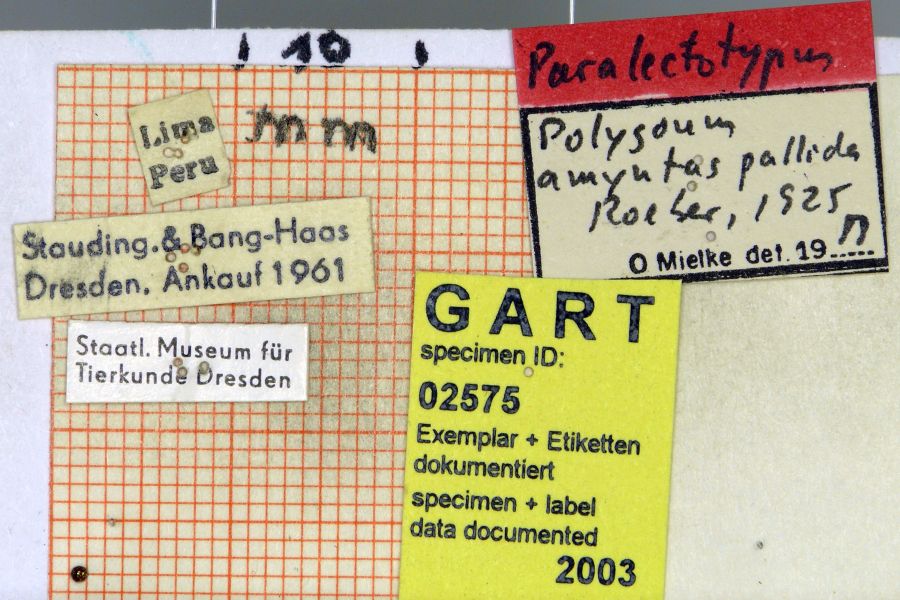 10
mm
Lima
Peru
Stauding. & Bang-Haas
Dresden. Ankauf 1961
Staatl. Museum für
Tierkunde Dresden
Paralectotypus
Polygonum
amyntas pallida
Roeber, 1925
O Mielke det. 19
GART
specimen ID:
02575
Exemplar + Etiketten
dokumentiert
specimen + label
data documented
2003